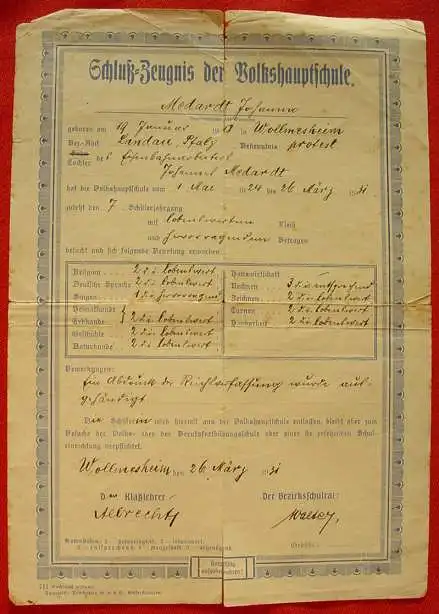 Schluß-Zeugnis der Volkshauptschule.
Medardt Johanna
geboren am 19 Januar 19 in Wollmesheim
Bez.-Amt Landau, Pfalz Bekenntnis protest
Tochter des Eisenbahnarbeiters
Medardt
hat die Volkshauptschule vom 1 Mai 1924 bis 26 März 1931
zuletzt den 7. Schülerjahrgang
mit lobenswertem Fleiß
und hervorragendem Betragen
besucht und sich folgende Bewertung erworben:
Religion 2 d.i. lobenswert
Deutsche Sprache 2 d.i. lobenswert
Singen 1 d.i. hervorragend
Heimatkunde
Erdkunde 2 d.i. lobenswert
Geschichte 2 d.i. lobenswert
Naturkunde 2 d.i. lobenswert
Hauswirtschaft
Rechnen 3 d.i. entsprechend
Zeichnen 2 d.i. lobenswert
Turnen 2 d.i. lobenswert
Handarbeit 2 d.i. lobenswert
Bemerkungen:
Ein Abdruck der Reichsverfassung wurde aus-
gehändigt.
Die Schülerin wird hiermit aus der Volkshauptschule entlassen, bleibt aber zum
Besuche der Volks- oder der Berufsfortbildungsschule oder einer sie ersetzenden Schul-
einrichtung verpflichtet.
Wollmesheim den 26. März 1931
Der Klaßlehrer: Der Bezirksschulrat:
Albrecht
Notenstufen: 1 hervorragend, 2 lobenswert,
3 entsprechend, 4 mangelhaft, 5 ungenügend